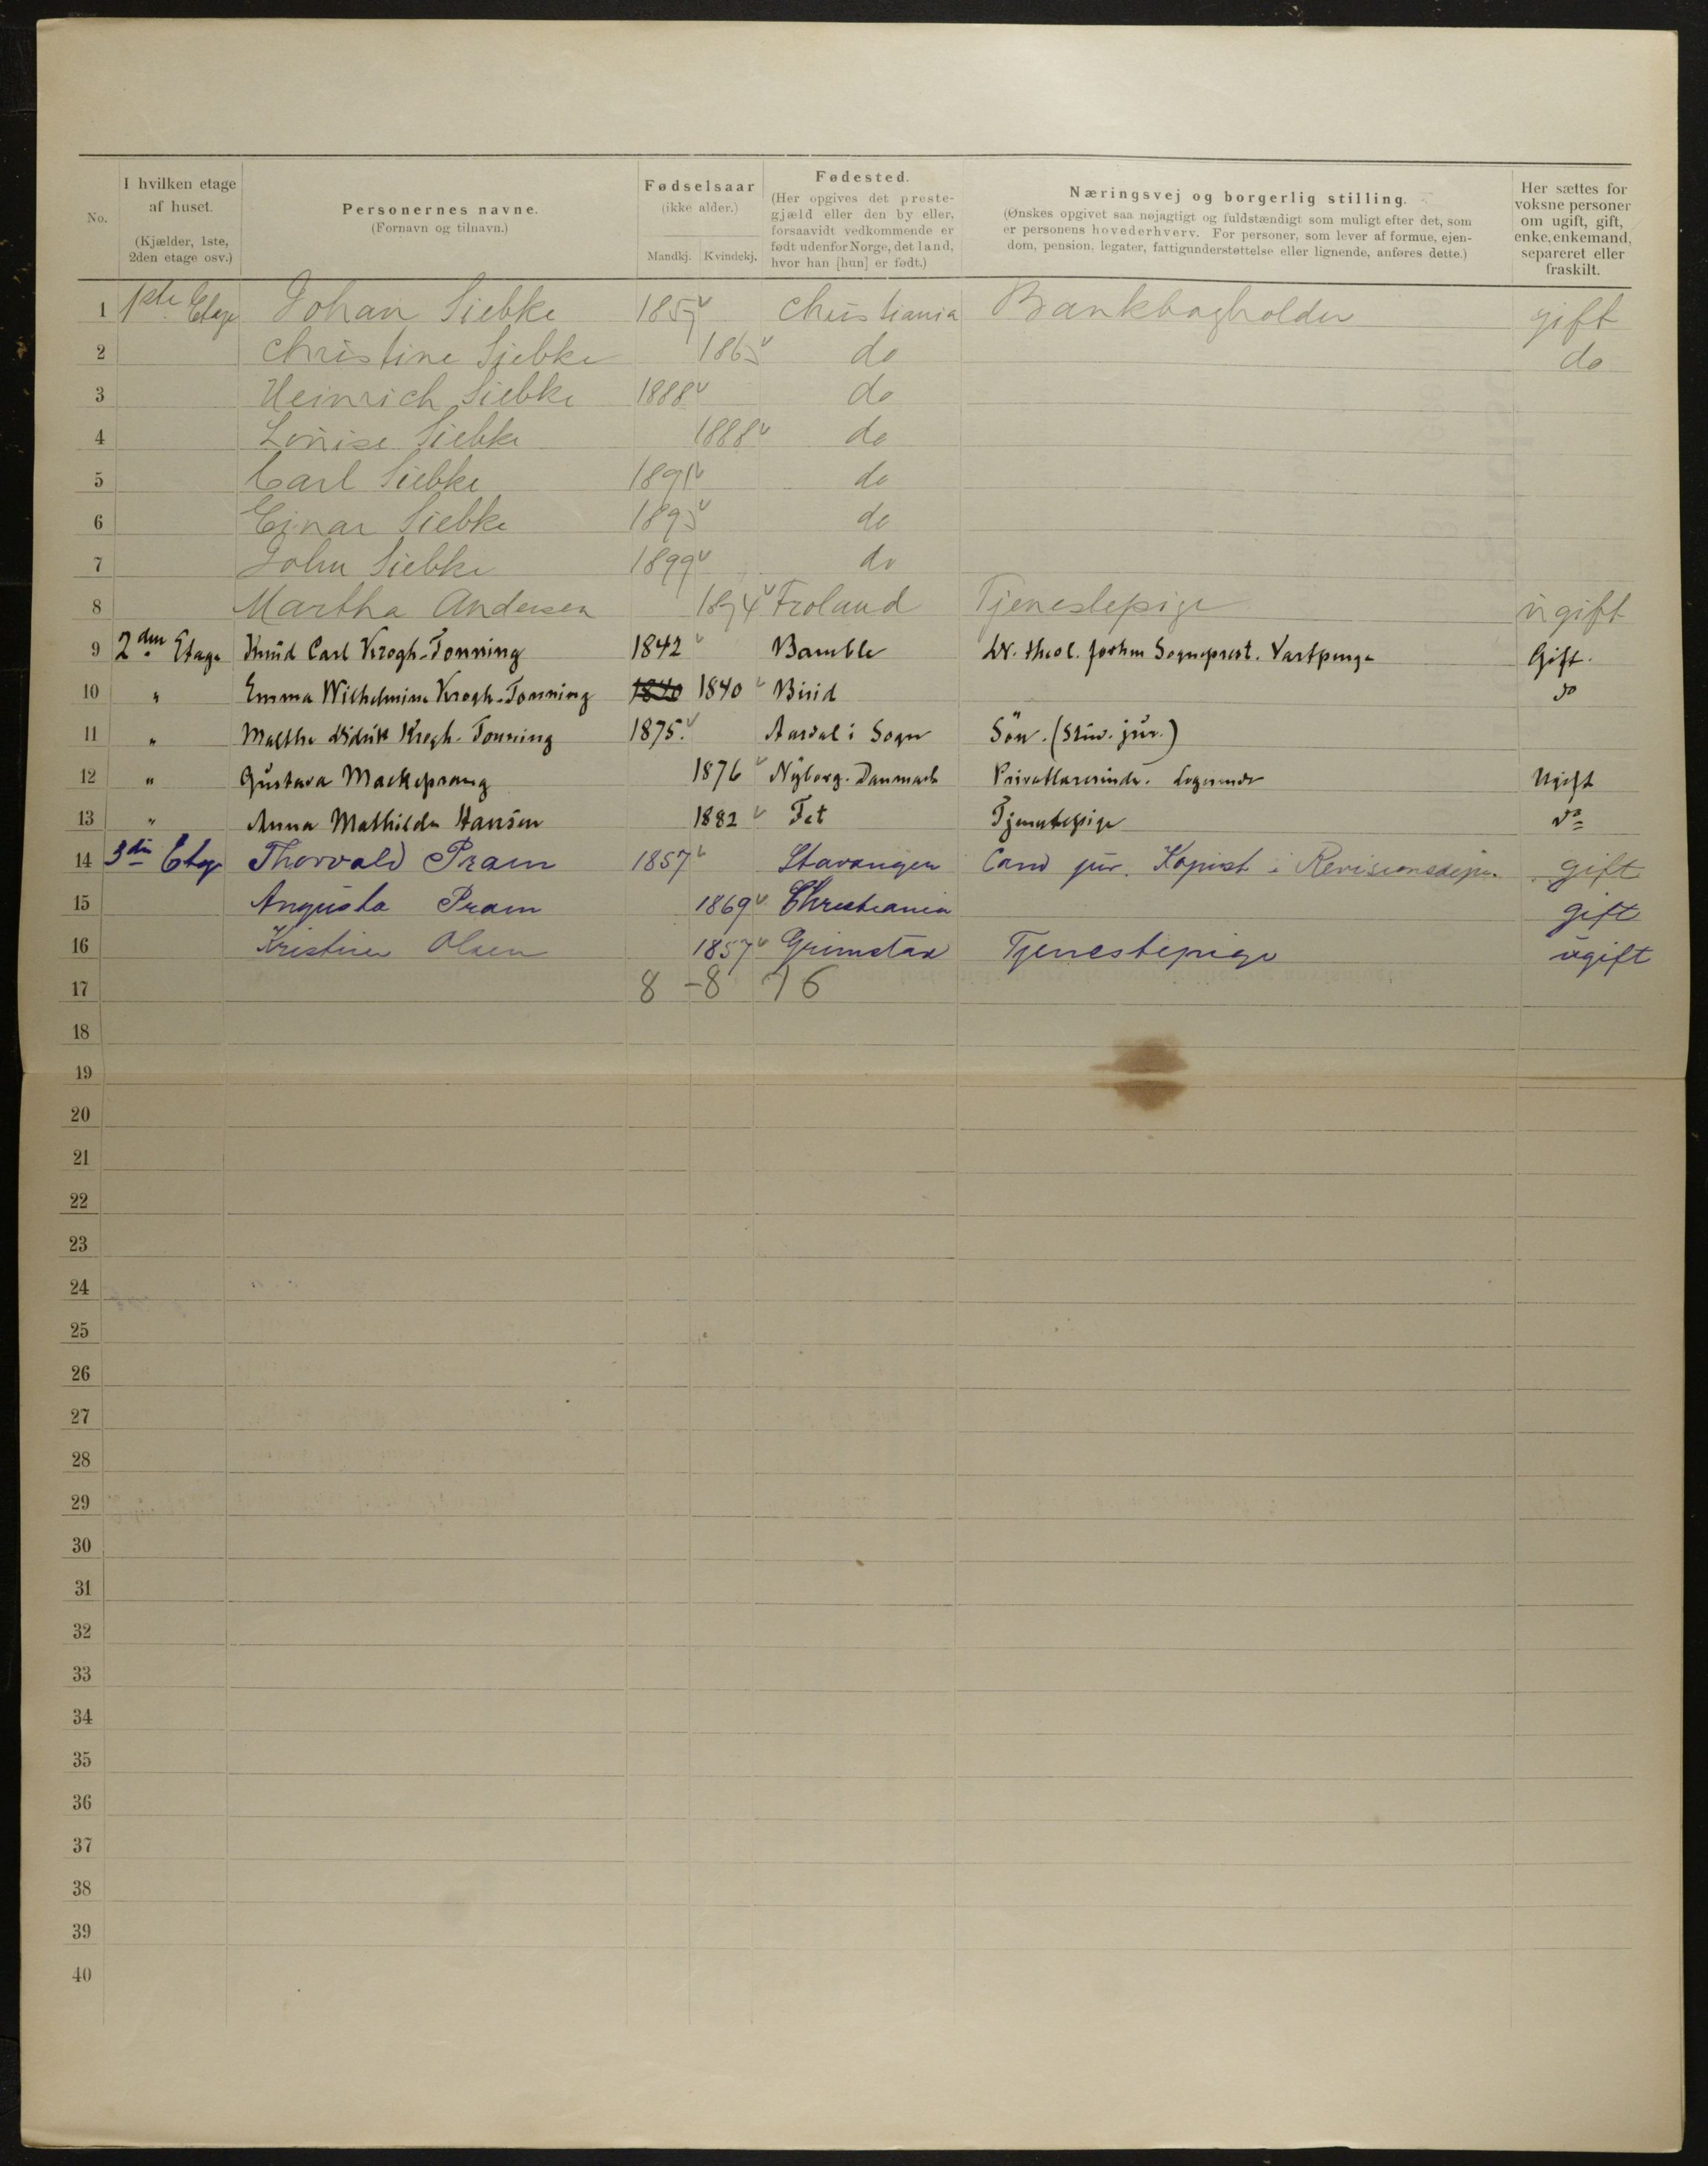 No.
I hvilken etage af huset.
(Kjælder, 1ste, 2den etage osv.)
Personernes navne.
(Fornavn og tilnavn.)
Fødselsaar
(ikke alder.)
Mandkj. Kvindekj.
Fødested.
(Her opgives det prestegjæld eller den by eller, forsaavidt vedkommende er født udenfor Norge, det land, hvor han [hun] er født.)
Næringsvej og borgerlig stilling.
(Ønskes opgivet saa nøjagtigt og fuldstændigt som muligt efter det, som er personens hovederhverv. For personer, som lever af formue, ejendom, pension, legater, fattigunderstøttelse eller lignende, anføres dette.)
Her sættes for voksne personer om ugift, gift, enke, enkemand, separeret eller fraskilt.
1 1ste Etage Johan Siebke 1857 Christiania Bankbogholder gift
2 Christine Siebke 1865 do do
3 Heinrich Siebke 1888 do
4 Louise Siebke 1888 do
5 Carl Siebke 1891 do
6 Einar Siebke 1895 do
7 John Siebke 1899 do
8 Martha Andersen 1874 Froland Tjenestepige ugift
9 2den Etage Knud Carl Krogh-Tonning 1842 Bamble Dr. theol. forhen Sogneprest. Gift.
10 " Emma Wilhelmine Krogh-Tonning 1840 1840 Birid do
11 " Malthe Didrik Krogh-Tonning 1875. Aardal i Sogn Sön. (Stud. jur.)
12 " Gustava Mackeprang 1876 Nyborg. Danmark Privatlærerinde. Logerende Ugift
13 " Anna Mathilde Hansen 1882 Fet Tjenestepige do
14 3die Etage Thorvald Pram 1857 Stavanger Cand jur. Kopist i Revisionsdep. gift
15 Augusta Pram 1869 Christiania gift
16 Kristine Olsen 1857 Grimstad Tjenestepige ugift
17 8 - 8 16
18
19
20
21
22
23
24
25
26
27
28
29
30
31
32
33
34
35
36
37
38
39
40